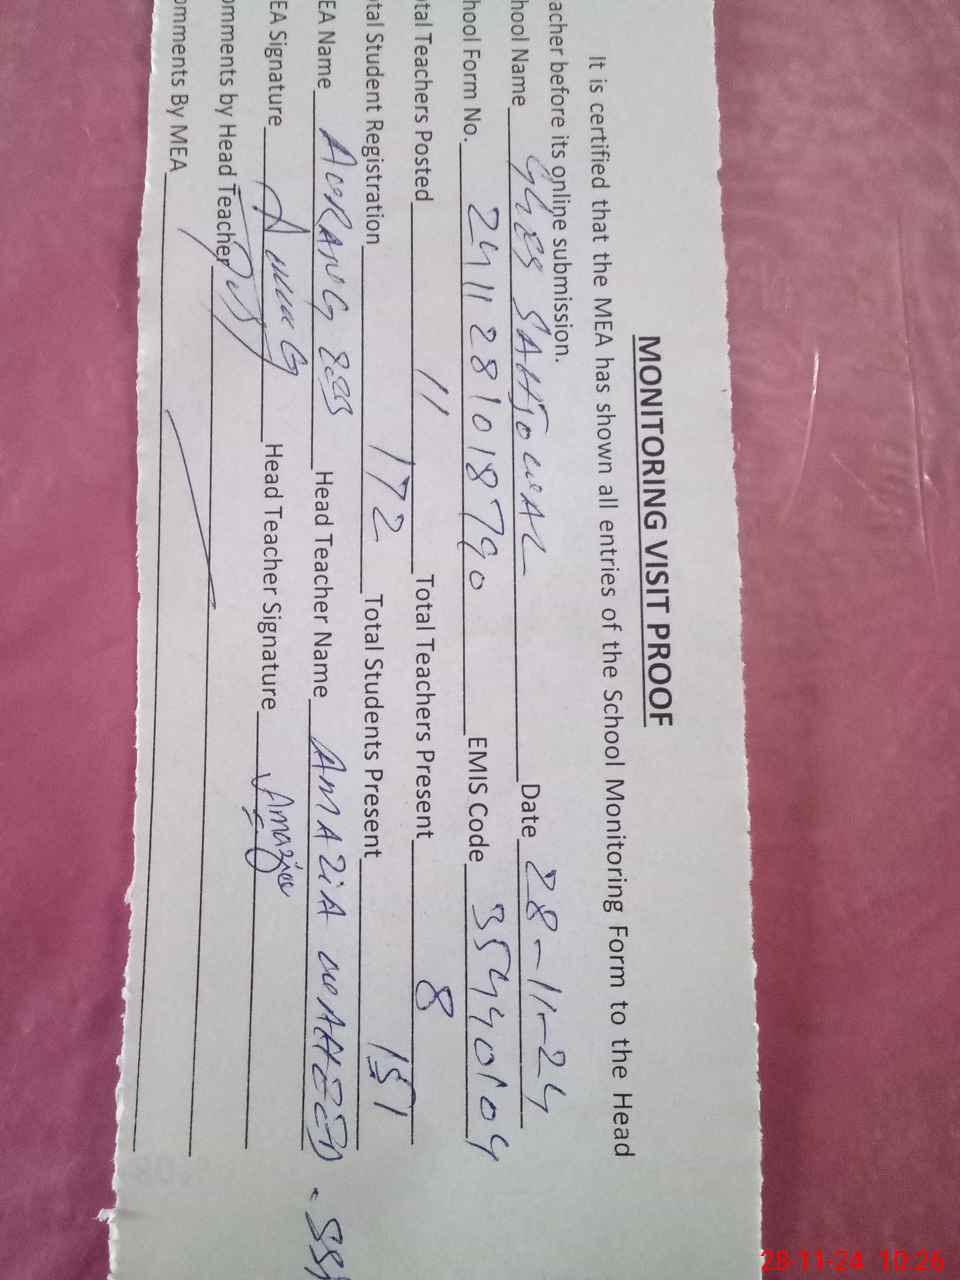 MONITORING VISIT PROOF
It is certified that the MEA has shown all entries of the School Monitoring Form to the Head
acher before its online submission.
hool Name GHES SAHJOWAL Date 28-11-24
hool Form No. 241128101879 EMIS Code 35440104
tal Teachers Posted 11 Total Teachers Present 8
tal Student Registration 172 Total Students Present 151
EA Name AURANG ZEB Head Teacher Name AMAZIA WAHEED - SSI
EA Signature Head Teacher Signature Amazia
omments by Head Teacher
omments By MEA
28-11-24 10:26